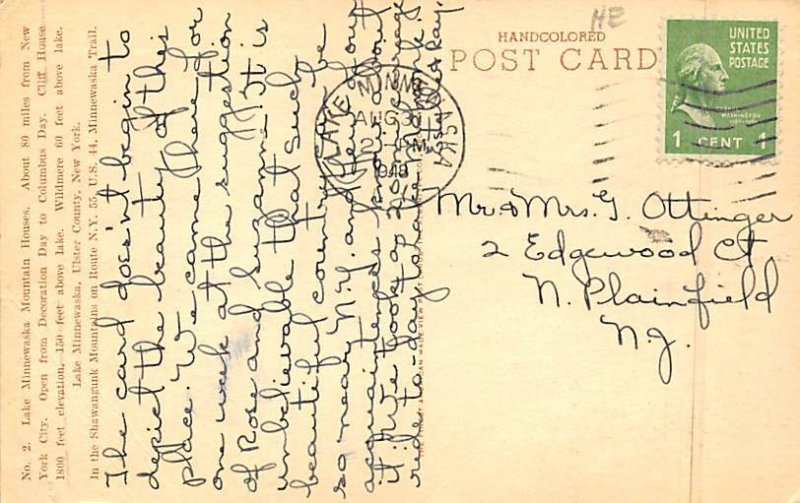 No. 2. Lake Minnewaska Mountain Houses. About 80 miles from New
York City. Open from Decoration Day to Columbus Day. Cliff House
1800 feet elevation, 150 feet above lake. Wildmere 60 feet above lake.
Lake Minnewaska, Ulster County, New York.
In the Shawangunk Mountains on Route N.Y. 55, U.S. 44, Minnewaska Trail.
The card doesn't begin to
depict the beauty of this
place. We came here for
one week at the suggestion
of Rose and Suzanne. It is
unbelievable that such
beautiful country can be
so near N.Y. and few of our
acquaintences know about
it. We took a
ride to-day to Lake Mohonk
HE
HANDCOLORED
POST CARD
UNITED
STATES
POSTAGE
WASHINGTON
1 CENT 1
LAKE MINNEWASKA
AUG 31
2-PM
1948
Mr & Mrs. G. Ottinger
2 Edgewood Ct.
N. Plainfield
N.J.